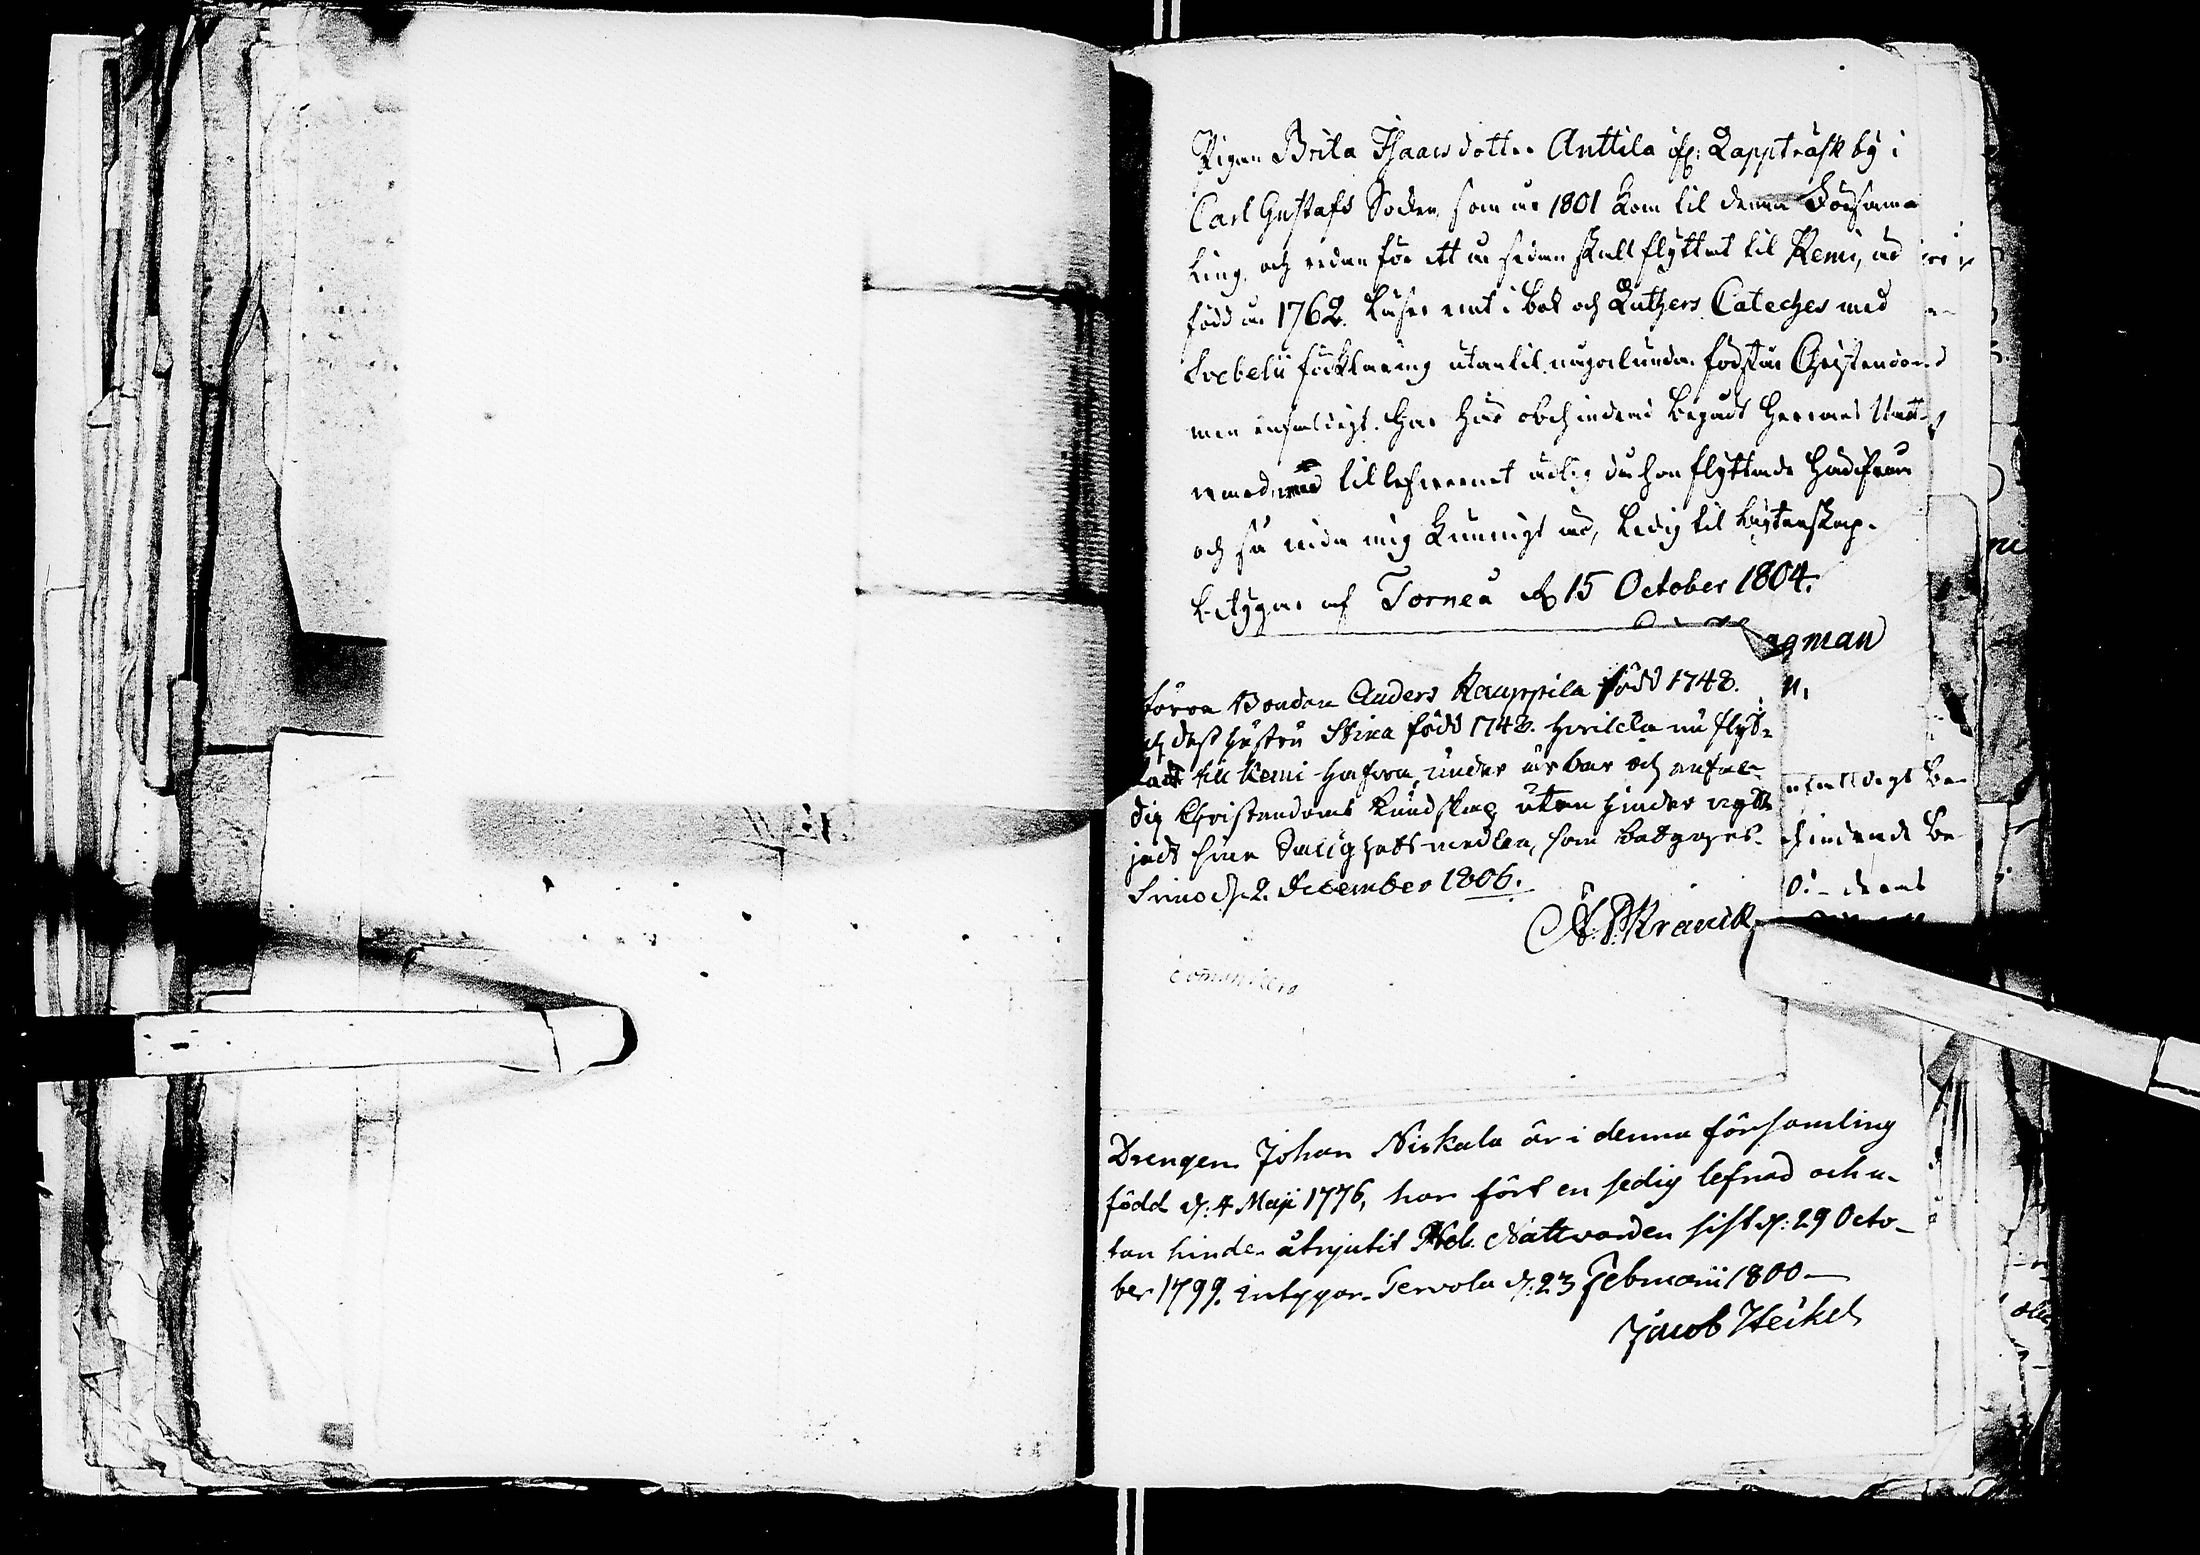 Pigan Brita Isaacsdotter Anttila ifr: Lappträsk by i
Carl Gustafs Socken, som år 1801 kom til denna Försam-
ling, och redan för ett år sedan skall flyttat til Kemi, är
född år 1762. Läser rent i bok och Luthers Cateches med
Svebelii förklaring utantil någorlunda. förstår Christendomen
men enfaldigt. Har här obehindrad begådt Herrans Natt-
vard med tillefvernet ärlig då hon flyttade härifrån
och så vida mig kunnigt är, ledig til ägtenskap.
Betygar af Torneå d 15 October 1804.
gman
förra Bonden Anders Kauppila född 1748.
och dess hustru Stina född 1748. hvilcka nu flyt-
tadt till Kemi hafva under ärbar och enfal-
dig Christendoms kundskap utan hinder nytt-
jadt sina Salighetsmedlen, som betyges.
Simo d. 2. December 1806.
n,
enfalldigt be-
hindradt be
Comministra
Drengen Johan Niskala är i denna församling
född d: 4 Maji 1776, har fört en sedig lefnad och u-
tan hinder åtnjutit H. Nattvarden sist d: 29 Octo-
ber 1799. intygar. Tervola d: 23 Februarii 1800 —
Jacob Heikel